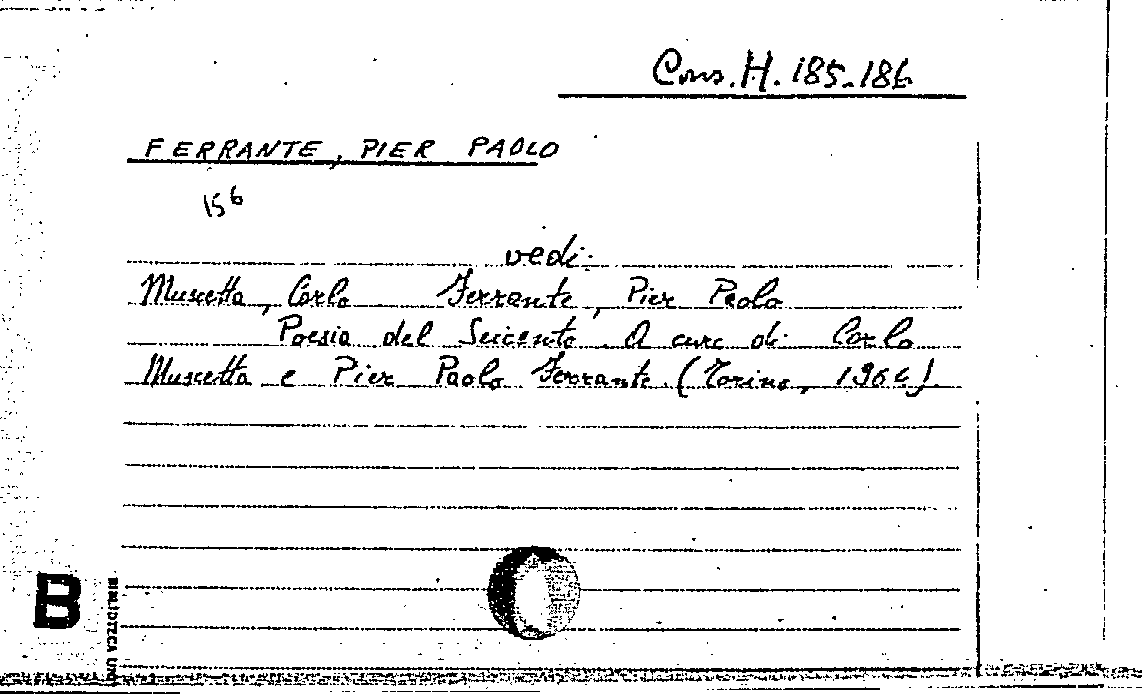 Cons. H. 185-186
FERRANTE, PIER PAOLO
156
vedi:
Muscetta, Carlo Ferrante, Pier Paolo
Poesia del Seicento. A cura di Carlo
Muscetta e Pier Paolo Ferrante (Torino, 1964)
B
BIBLIOTECA